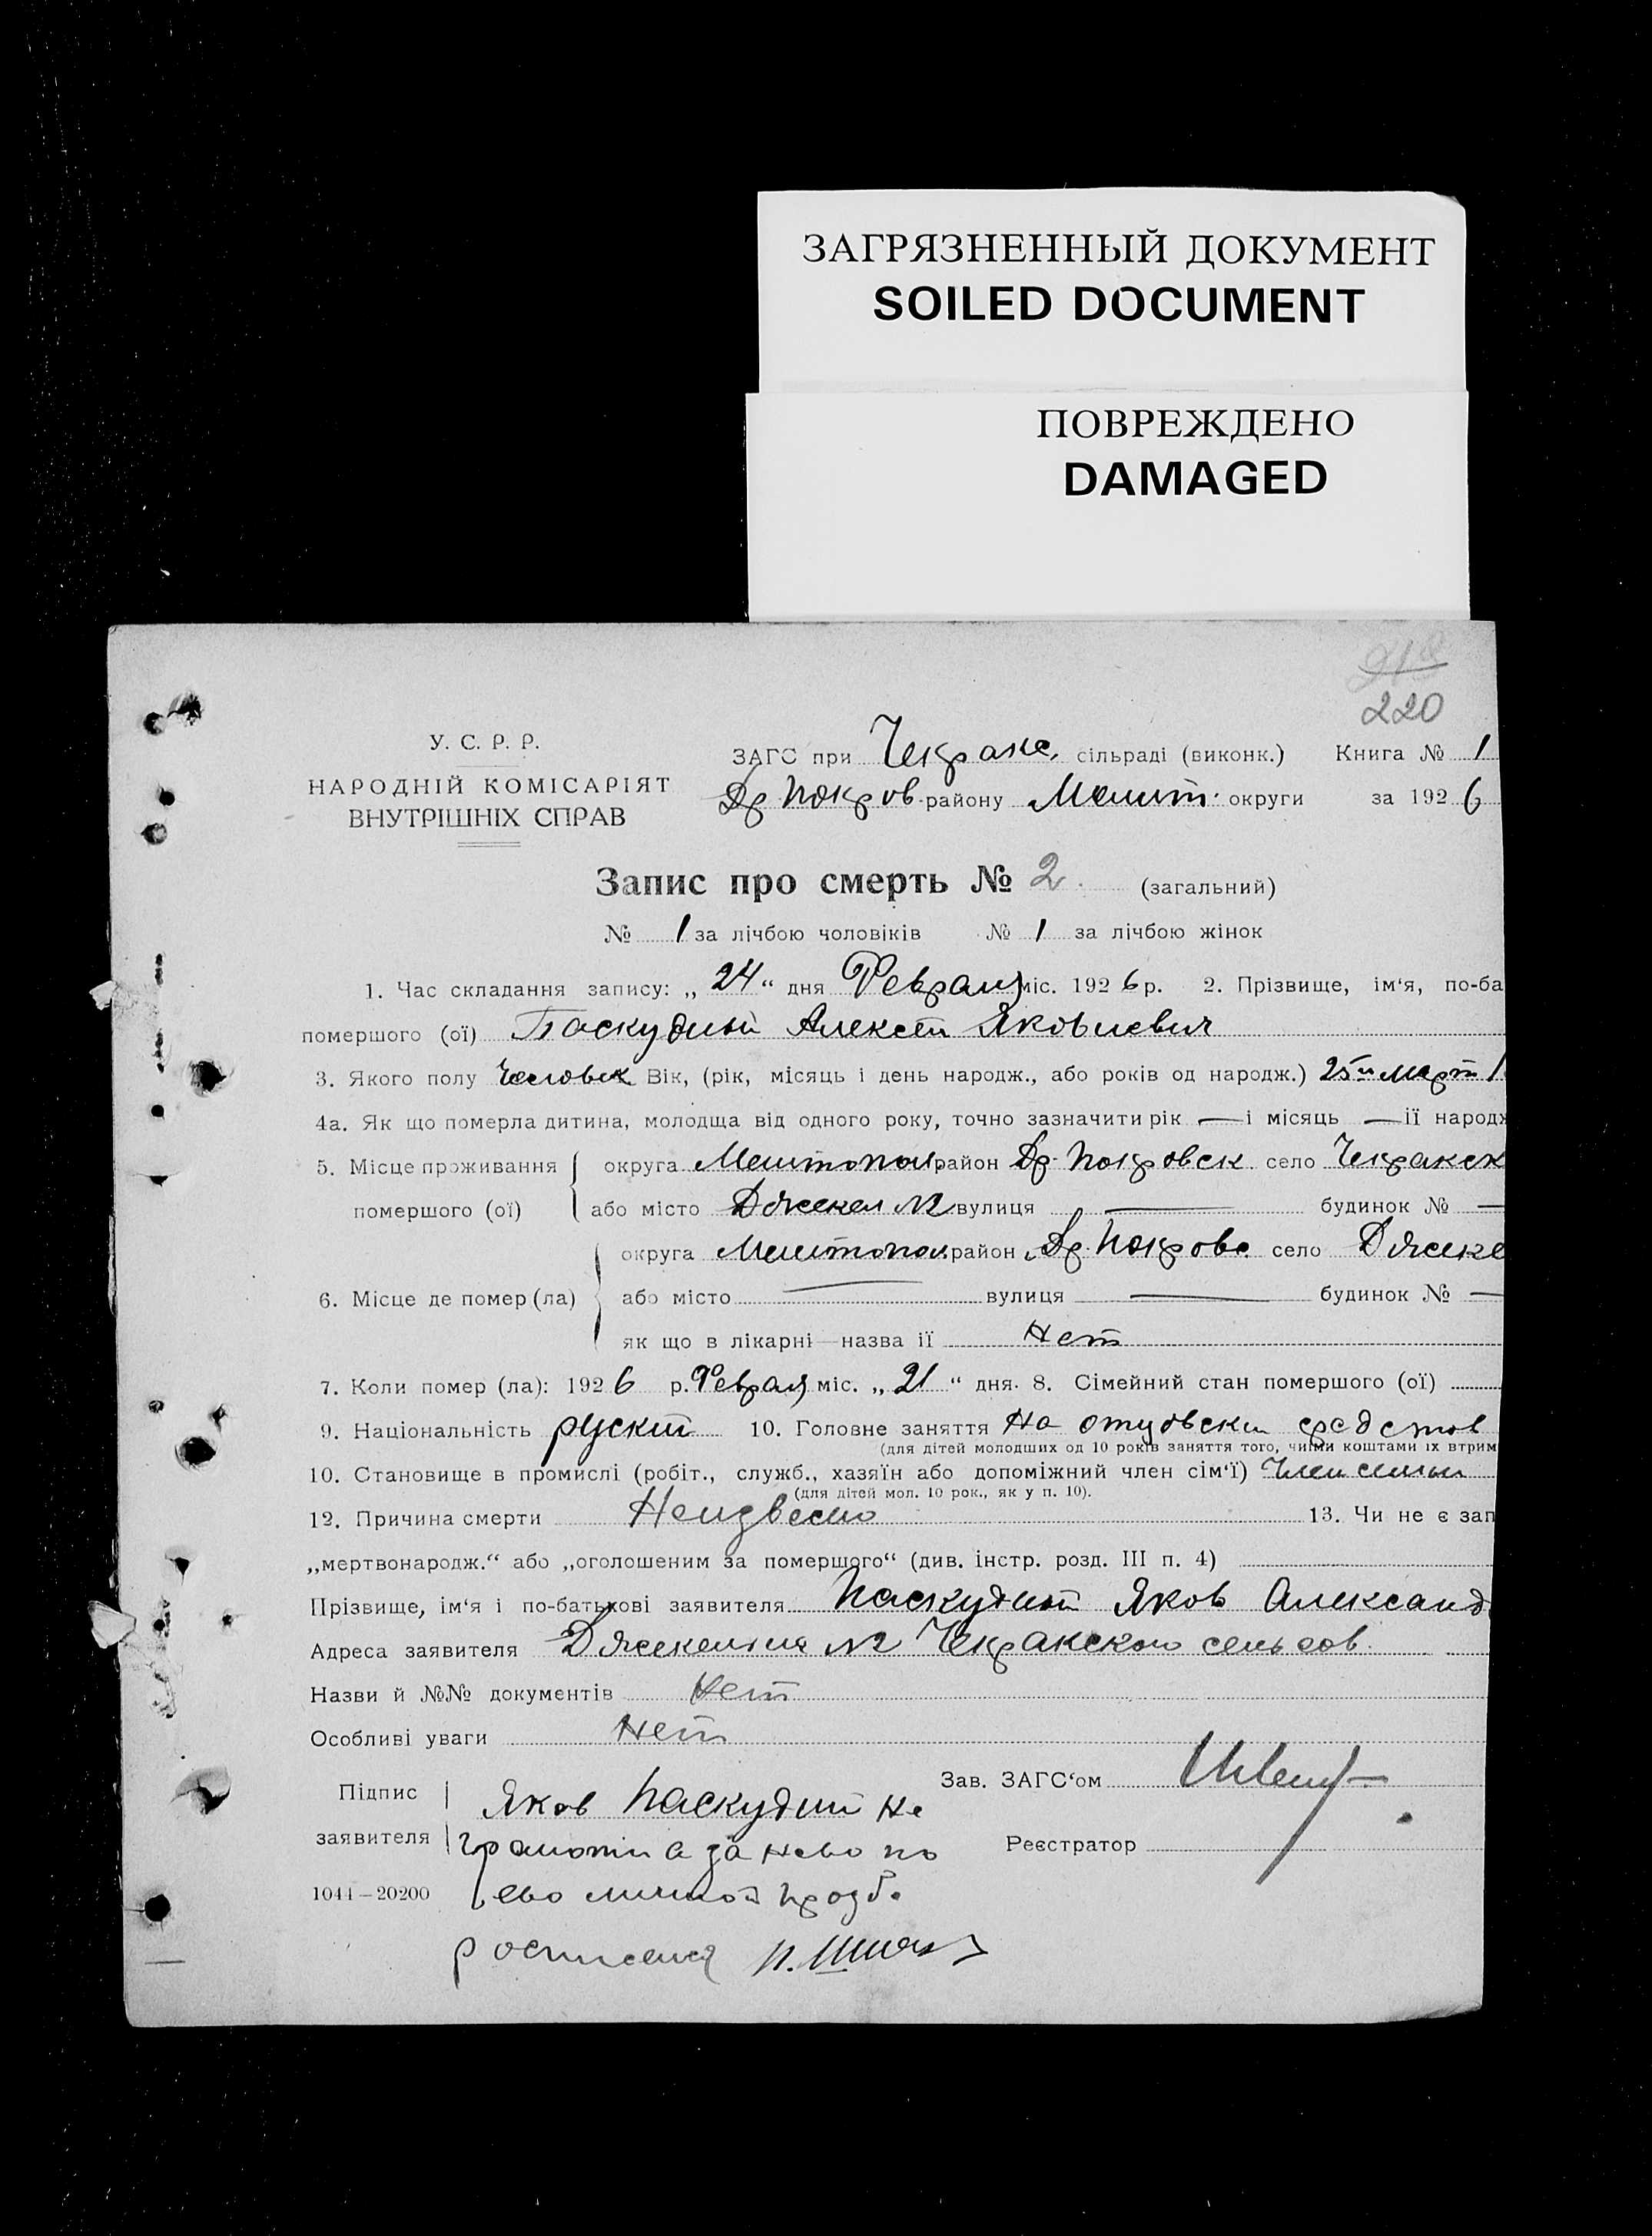 ЗАГРЯЗНЕННЫЙ ДОКУМЕНТ
SOILED DOCUMENT
ПОВРЕЖДЕНО
DAMAGED
220
У. С. Р. Р.
НАРОДНІЙ КОМІСАРІЯТ
ВНУТРІШНІХ СПРАВ
ЗАГС при Чекракс. сільраді (виконк.) Книга № 1
Др Покров. району Мелит. округи за 1926
Запис про смерть № 2. (загальний)
№ 1 за лічбою чоловіків № 1 за лічбою жінок
1. Час складання запису: „24“ дня Февраля міс. 1926 р. 2. Прізвище, ім‘я, по-ба
помершого (ої) Паскудный Алексей Яковлевич
3. Якого полу Человек Вік, (рік, місяць і день народж., або років од народж.) 25го март 1
4а. Як що померла дитина, молодша від одного року, точно зазначити рік — і місяць — її народж
5. Місце проживання помершого (ої) округа Мелитопол район Др. Покровск село Чекракск
або місто № 2 вулиця — будинок № —
6. Місце де помер (ла) округа Мелитопол. район Др. Покровс село
або місто — вулиця — будинок № —
як що в лікарні—назва її Нет
7. Коли помер (ла): 1926 р. Февраля міс. „21“ дня. 8. Сімейний стан помершого (ої)
9. Національність руский 10. Головне заняття На отцовски средстов
(для дітей молодших од 10 років заняття того, чиїми коштами їх втрим
10. Становище в промислі (робіт., служб., хазяїн або допоміжний член сім‘ї) Член семьи
(для дітей мол. 10 рок., як у п. 10).
12. Причина смерти Неизвесно 13. Чи не є зап
„мертвонародж.“ або „оголошеним за помершого“ (див. інстр. розд. III п. 4)
Прізвище, ім‘я і по-батькові заявителя Паскудный Яков Александ
Адреса заявителя № 2 Чекракского сельсов.
Назви й №№ документів Нет
Особливі уваги Нет
Зав. ЗАГС‘ом
Підпис заявителя Яков Паскудний не
грамотни а за нево по
ево личной прозб.
росписался
Реєстратор
1044—20200